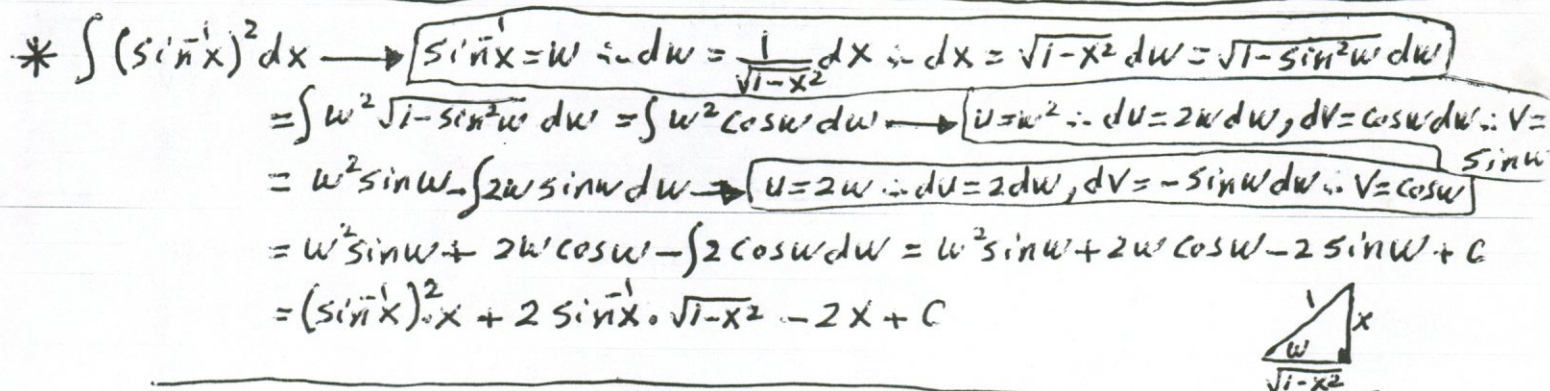 * ∫ (sin⁻¹x)² dx → sin⁻¹x = w ∴ dw = 1/√(1-x²) dx ∴ dx = √(1-x²) dw = √(1-sin²w) dw
= ∫ w² √(1-sin²w) dw = ∫ w² cosw dw → u=w² ∴ du=2w dw, dv=cosw dw ∴ v=
sinw
= w² sinw - ∫ 2w sinw dw → u=2w ∴ du=2dw, dv=-sinw dw ∴ v=cosw
= w² sinw + 2w cosw - ∫ 2 cosw dw = w² sinw + 2w cosw - 2 sinw + C
= (sin⁻¹x)².x + 2 sin⁻¹x . √(1-x²) - 2x + C
1 x
w
√(1-x²)